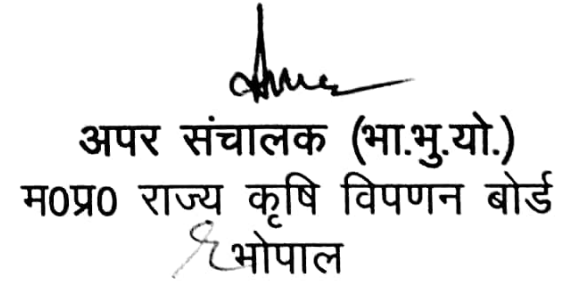 अपर संचालक (भा.भु.यो.)
म0प्र0 राज्य कृषि विपणन बोर्ड
भोपाल